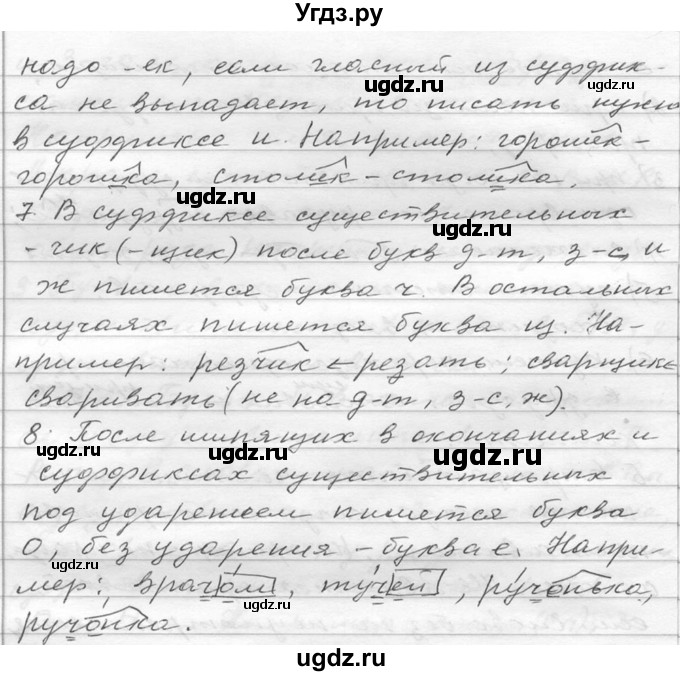 Угдз.ру
надо -ек, если гласный из суффик-
са не выпадает, то писать нужно
в суффиксе и. Например: горошек -
горошка, столик - столика.
7. В суффиксе существительных
-чик (-щик) после букв д-т, з-с, и
ж пишется буква ч. В остальных
случаях пишется буква щ. На-
пример: резчик ← резать; сварщик ←
сваривать (не на д-т, з-с, ж).
8. После шипящих в окончаниях и
суффиксах существительных
под ударением пишется буква
О, без ударения - буква е. Напри-
мер: врачом, тучей, ручонька,
ручонка.
ugdz.ru
ugdz.ru
ugdz.ru
ugdz.ru
ugdz.ru
ugdz.ru
ugdz.ru
ugdz.ru
ugdz.ru
ugdz.ru
ugdz.ru
ugdz.ru